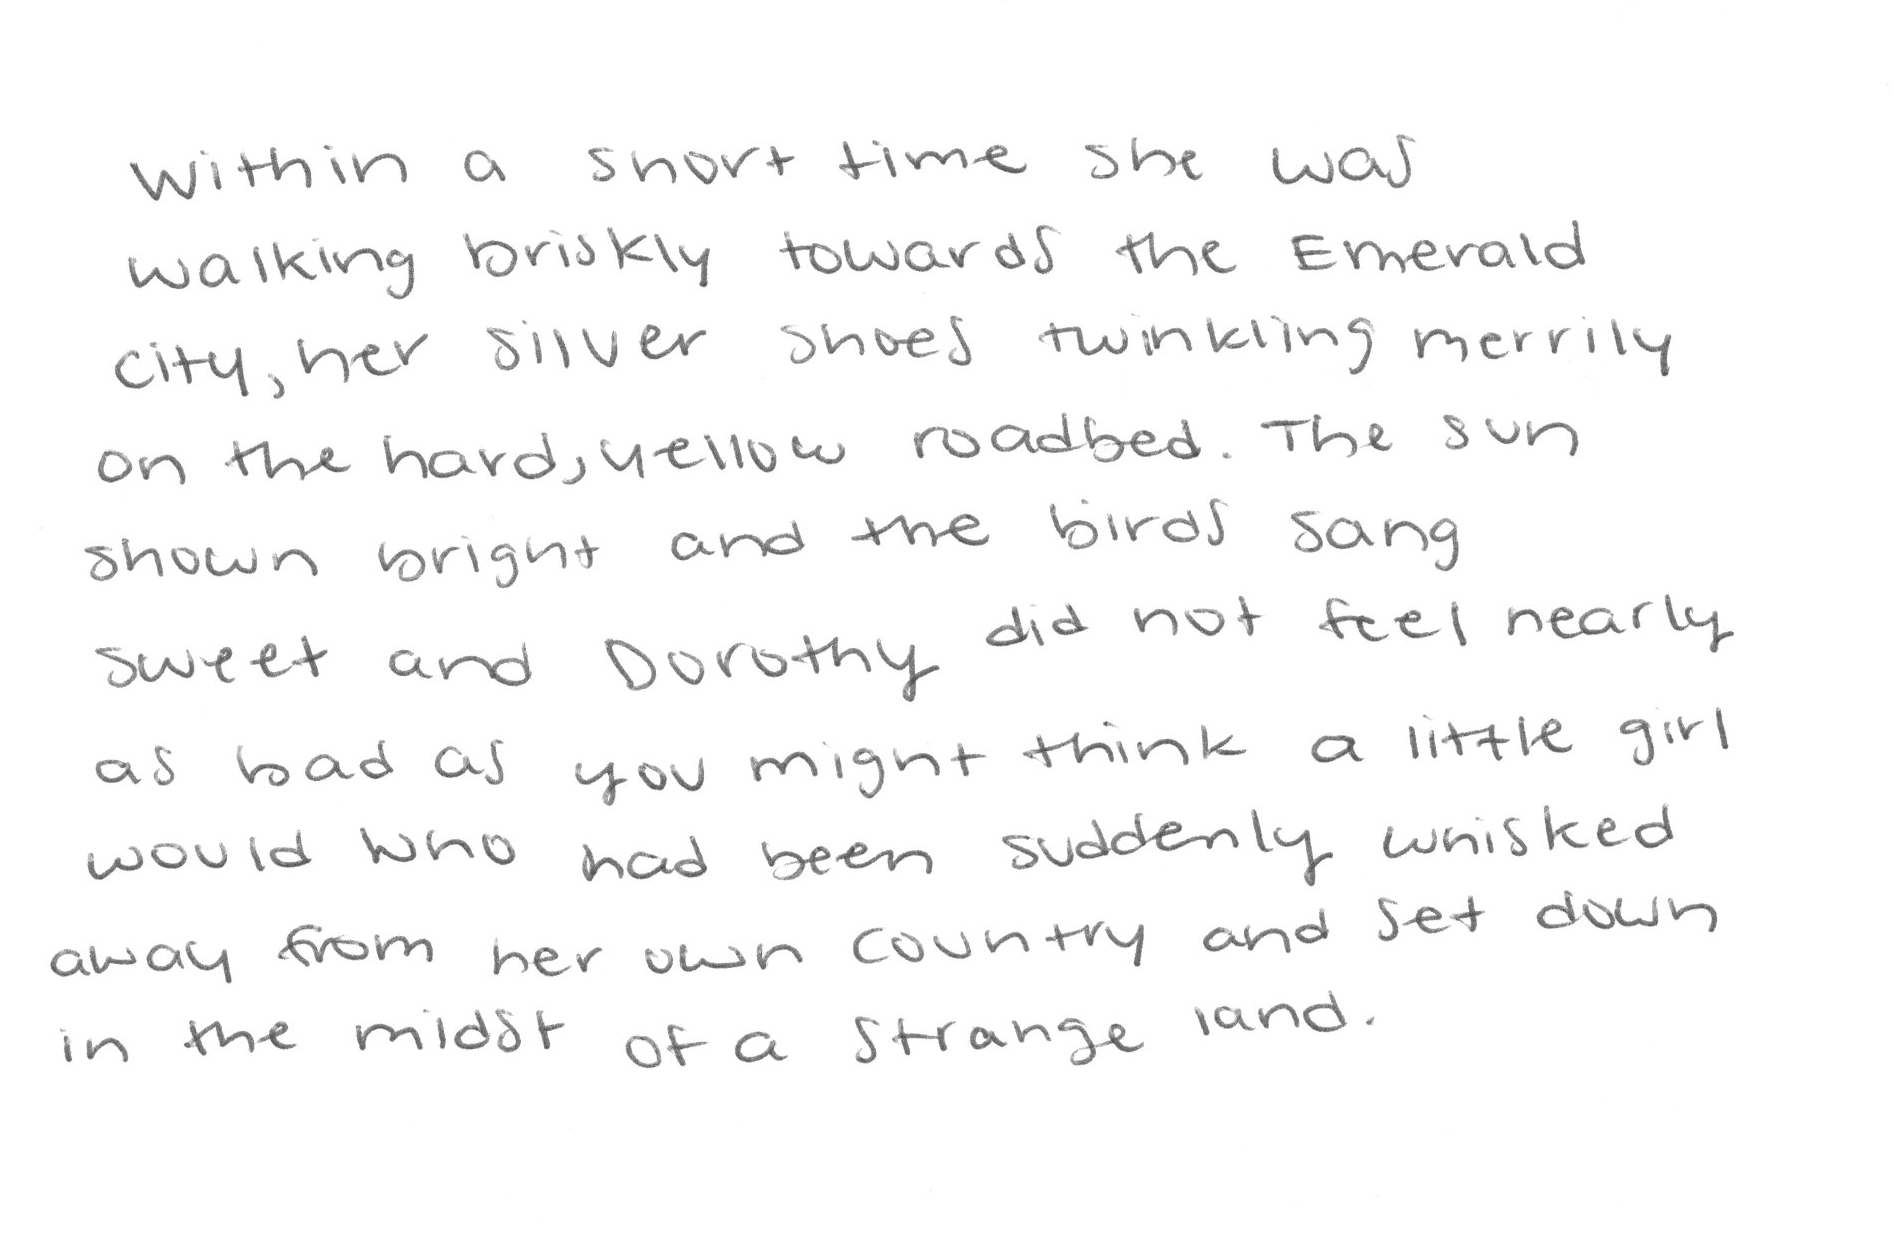 Within a short time she was
walking briskly towards the Emerald
city, her silver shoes twinkling merrily
on the hard, yellow roadbed. The sun
shown bright and the birds sang
sweet and Dorothy did not feel nearly
as bad as you might think a little girl
would who had been suddenly whisked
away from her own country and set down
in the midst of a strange land.